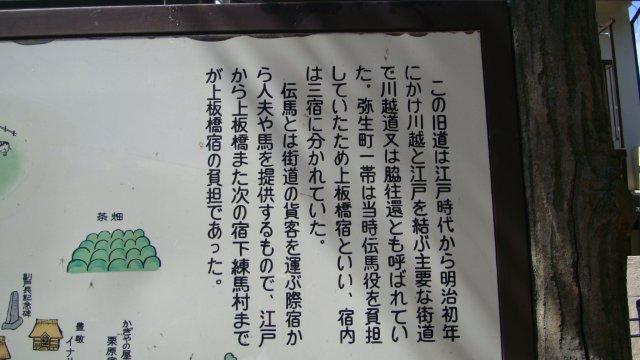 この旧道は江戸時代から明治初年
にかけ川越と江戸を結ぶ主要な街道
で川越道又は脇往還とも呼ばれてい
た。弥生町一帯は当時伝馬役を負担
していたため上板橋宿といい、宿内
は三宿に分かれていた。
伝馬とは街道の貨客を運ぶ際宿か
ら人夫や馬を提供するもので、江戸
から上板橋また次の宿下練馬村まで
が上板橋宿の負担であった。
茶畑
かぎやの屋
栗原
豊敬
イナリ